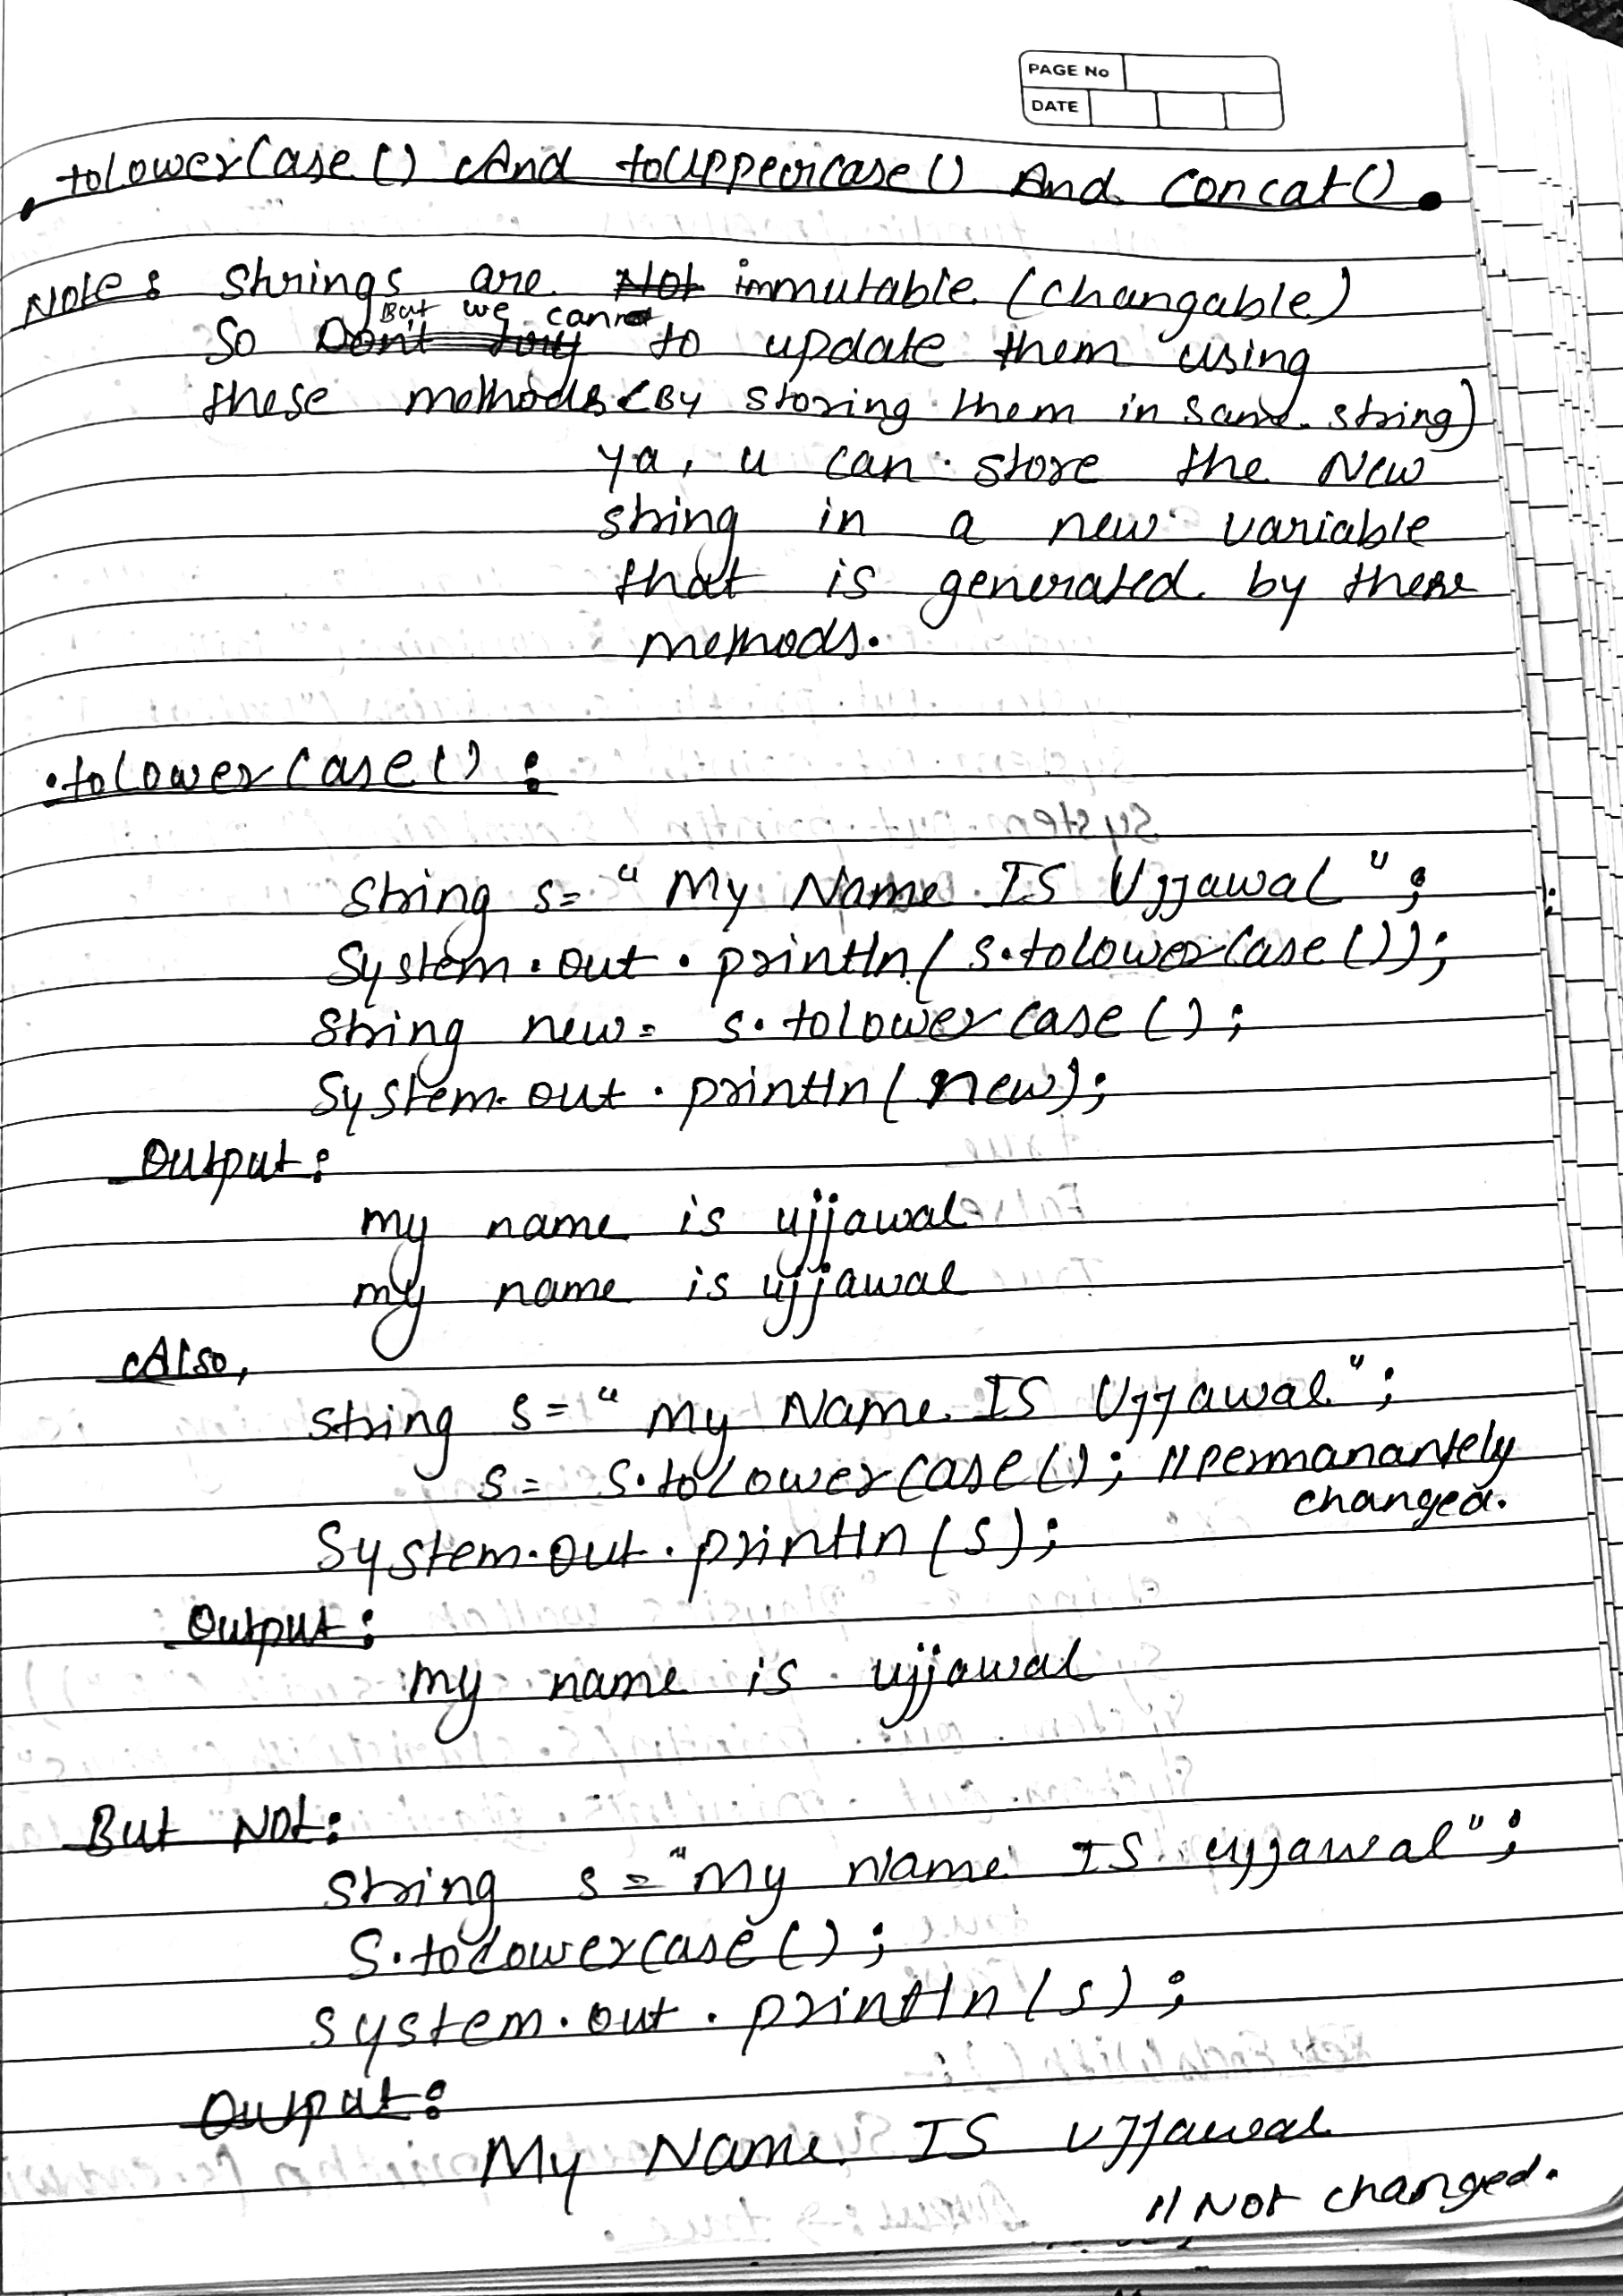 PAGE No
DATE
toLowerCase() And toUpperCase() And concat().
Note: Strings are Not immutable (changable)
But we cannot
So Don't try to update them using
these methods (By storing them in same string)
ya, u can store the New
string in a new variable
that is generated by these
methods.
• toLowerCase() :
String s= "My Name IS Ujjawal";
System.out.println(s.toLowerCase());
String new= s.toLowerCase();
System.out.println(new);
Output:
my name is ujjawal
my name is ujjawal
Also,
String s= "My Name IS Ujjawal";
s= s.toLowerCase(); //permanantely
changed.
System.out.println(s);
Output:
my name is ujjawal
But Not:
String s="My Name IS ujjawal";
S.toLowerCase();
System.out.println(s);
Output:
My Name IS Ujjawal
// Not changed.